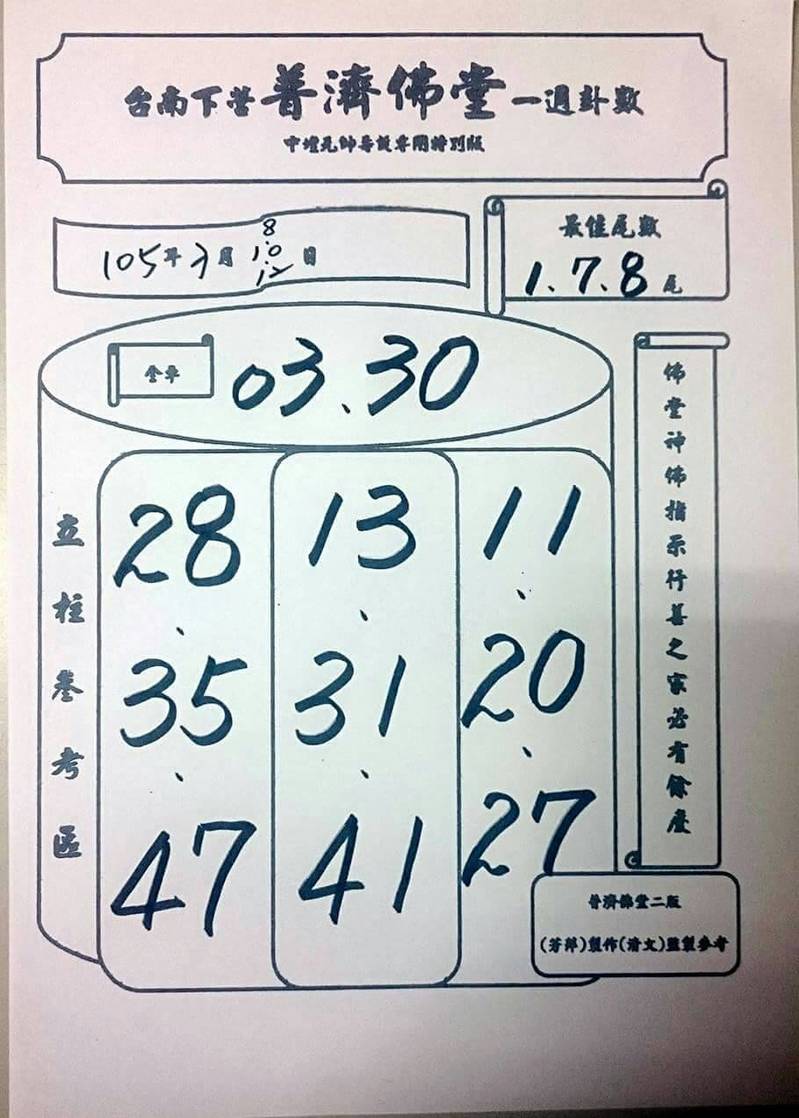 台南下營普濟佛堂一週卦數
中壇元帥專設專開特別版
105年3月8.10.12日
最佳尾數
1、7、8尾
全車
03、30
立柱叁考區
28、35、47
13、31、41
11、20、27
佛堂神佛指示行善之家必有餘慶
普濟佛堂二版
(芳萍)製作(清文)監製參考